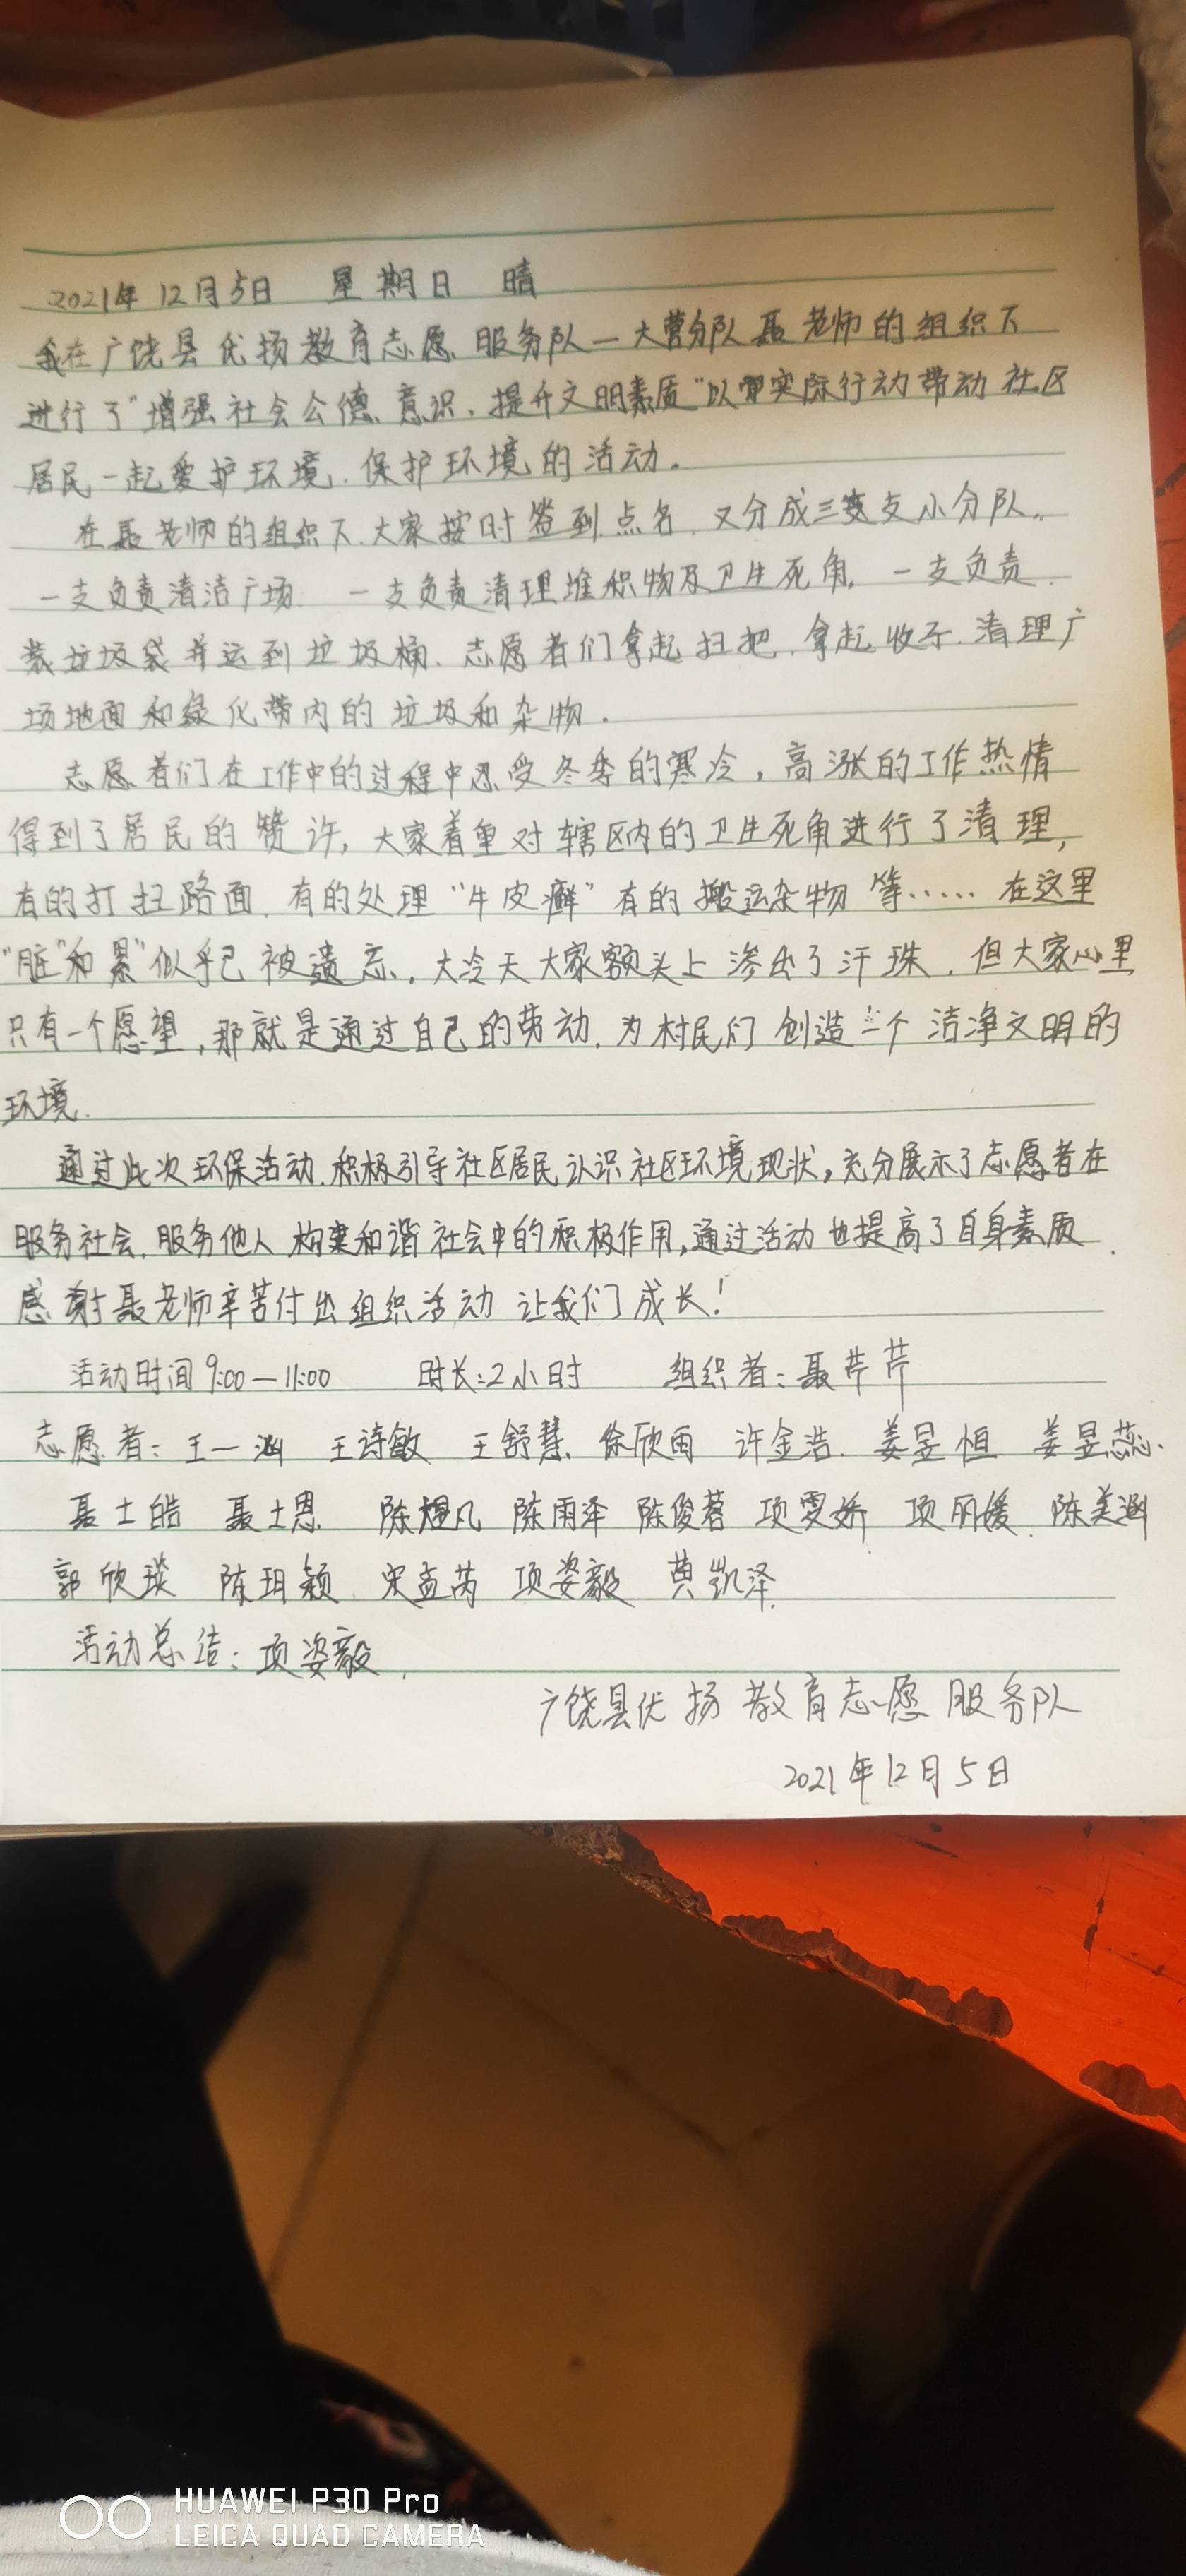 2021年12月5日 星期日 晴
我在广饶县优扬教育志愿服务队一大营分队聂老师的组织下
进行了"增强社会公德意识,提升文明素质"以实际行动带动社区
居民一起爱护环境.保护环境的活动。
在聂老师的组织下.大家按时签到点名,又分成三支小分队。
一支负责清洁广场. 一支负责清理堆积物及卫生死角, 一支负责
装垃圾袋并运到垃圾桶.志愿者们拿起扫把,拿起收子.清理广
场地面和绿化带内的垃圾和杂物.
志愿者们在工作中的过程中忍受冬季的寒冷,高涨的工作热情
得到了居民的赞许,大家着重对辖区内的卫生死角进行了清理,
有的打扫路面.有的处理"牛皮癣"有的搬运杂物等……在这里
"脏"和"累"似乎已被遗忘.大冷天大家额头上渗出了汗珠.但大家心里
只有一个愿望,那就是通过自己的劳动,为村民们创造一个洁净文明的
环境.
通过此次环保活动.积极引导社区居民认识社区环境现状,充分展示了志愿者在
服务社会.服务他人构建和谐社会中的积极作用,通过活动也提高了自身素质.
感谢聂老师辛苦付出组织活动让我们成长!
活动时间9:00—11:00 时长:2小时 组织者:聂芹芹
志愿者:王一涵 王诗敏 王舒慧 徐欣雨 许金浩 姜昱恒 姜昱蕊
聂士皓 聂士恩 陈煜凡 陈雨泽 陈俊蓉 项雯娇 项丽媛 陈美涵
郭欣琰 陈玥颖 宋孟芮 项姿毅 黄凯泽
活动总结:项姿毅
广饶县优扬教育志愿服务队
2021年12月5日
HUAWEI P30 Pro
LEICA QUAD CAMERA